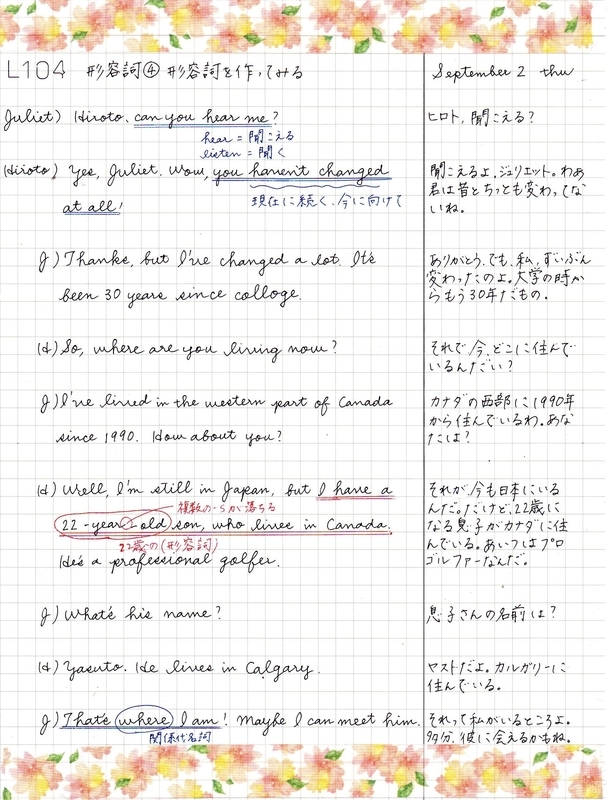 L104 形容詞④ 形容詞を作ってみる
September 2 thu
Juliet) Hiroto, can you hear me?
hear = 聞こえる
listen = 聞く
ヒロト, 聞こえる?
Hiroto) Yes, Juliet. Wow, you haven't changed
at all!
現在に続く、今に向けて
聞こえるよ、ジュリエット。わあ
君は昔とちっとも変わってな
いね。
J) Thanks, but I've changed a lot. It's
been 30 years since colloge.
ありがとう。でも、私、ずいぶん
変わったのよ。大学の時か
らもう30年だもの。
H) So, where are you living now?
それで今、どこに住んで
いるんだい?
J) I've lived in the western part of Canada
since 1990. How about you?
カナダの西部に1990年
から住んでいるわ。あな
たは?
H) Well, I'm still in Japan, but I have a
複数の-sが落ちる
22-year-old son, who lives in Canada.
22歳の(形容詞)
He's a professional golfer.
それが、今も日本にいる
んだ。だけど、22歳に
なる息子がカナダに住
んでいる。あいつはプロ
ゴルファーなんだ。
J) What's his name?
息子さんの名前は?
H) Yasuto. He lives in Calgary.
ヤストだよ。カルガリーに
住んでいる。
J) That's where I am! Maybe I can meet him.
関係代名詞
それって私がいるところよ。
多分、彼に会えるかもね。